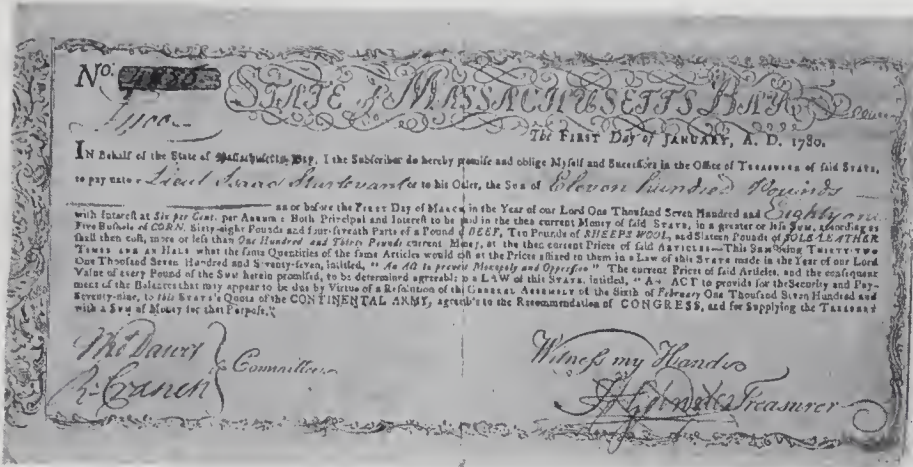 No: 4836
STATE of MASSACHUSETTS BAY
£1100
The FIRST Day of JANUARY, A. D. 1780.
IN Behalf of the State of Massachusetts Bay, I the Subscriber do hereby promise and oblige Myself and Successors in the Office of TREASURER of said STATE,
to pay unto Lieut Isaac Sturtevant or to his Order, the SUM of Eleven hundred Pounds
on or before the FIRST Day of MARCH, in the Year of our Lord One Thousand Seven Hundred and Eighty one
with Interest at Six per Cent. per ANNUM: Both Principal and Interest to be paid in the then current Money of said STATE, in a greater or less SUM, according as
Five Bushels of CORN, Sixty-eight Pounds and four-seventh Parts of a Pound of BEEF, Ten Pounds of SHEEPS WOOL, and Sixteen Pounds of SOLE LEATHER
shall then cost, more or less than One Hundred and Thirty Pounds current Money, at the then current Prices of said ARTICLES—This SUM being THIRTY-TWO
TIMES AND AN HALF what the same Quantities of the same Articles would cost at the Prices affixed to them in a Law of this STATE made in the Year of our Lord
One Thousand Seven Hundred and Seventy-seven, intitled, "An Act to prevent Monopoly and Oppression" The current Prices of said Articles, and the consequent
Value of every Pound of the SUM herein promised, to be determined agreeable to a LAW of this STATE, intitled, "An ACT to provide for the Security and Pay-
ment of the Balances that may appear to be due by Virtue of a Resolution of the GENERAL ASSEMBLY of the Sixth of February One Thousand Seven Hundred and
Seventy-nine, to this STATE's Quota of the CONTINENTAL ARMY, agreeable to the Recommendation of CONGRESS, and for Supplying the TREASURY
with a SUM of Money for that Purpose."
Tho Dawes
R. Cranch
Committee
Witness my Hand
Treasurer